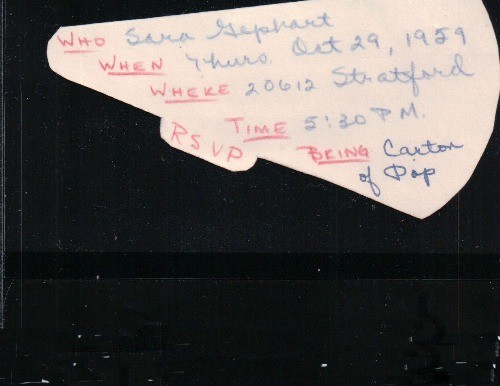 WHO Sara Gephart
WHEN Thurs. Oct 29, 1959
WHERE 20612 Stratford
TIME 5:30 P.M.
RSVP
BRING Carton
of Pop